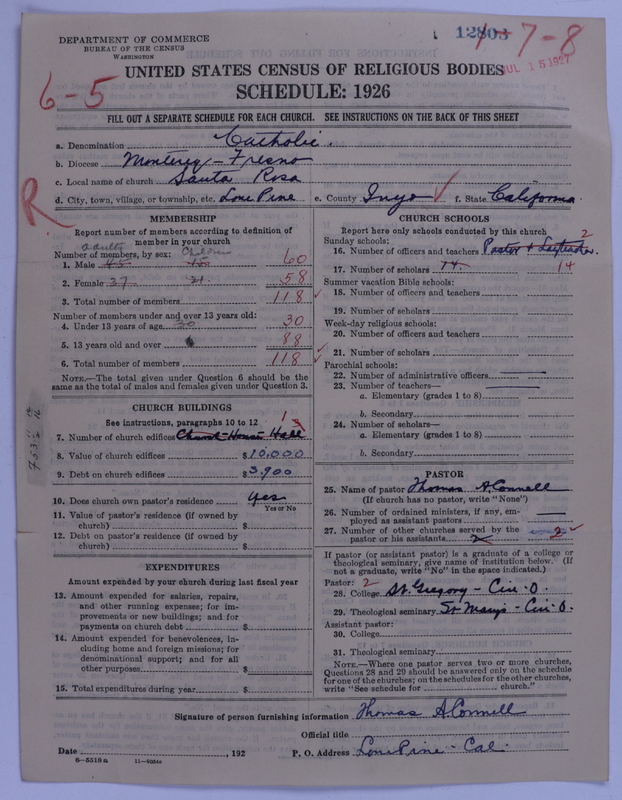 12803 1-7-8
DEPARTMENT OF COMMERCE
BUREAU OF THE CENSUS
WASHINGTON
JUL 15 1927
UNITED STATES CENSUS OF RELIGIOUS BODIES
6-5
SCHEDULE: 1926
FILL OUT A SEPARATE SCHEDULE FOR EACH CHURCH. SEE INSTRUCTIONS ON THE BACK OF THIS SHEET
a. Denomination Catholic.
b. Diocese Monterey - Fresno
c. Local name of church Santa Rosa
R
d. City, town, village, or township, etc. Lone Pine e. County Inyo ✓ f. State California.
MEMBERSHIP
Report number of members according to definition of
member in your church
Number of members, by sex: adults children
1. Male 45 15 60
2. Female 37 21 58
3. Total number of members 118 ✓
Number of members under and over 13 years old:
4. Under 13 years of age 30 30
5. 13 years old and over 88
6. Total number of members 118 ✓
NOTE.—The total given under Question 6 should be the
same as the total of males and females given under Question 3.
CHURCH BUILDINGS
See instructions, paragraphs 10 to 12
7. Number of church edifices Church-House Hall 1
8. Value of church edifices $10,000
9. Debt on church edifices $3,900
10. Does church own pastor's residence yes
Yes or No
11. Value of pastor's residence (if owned by
church) $
12. Debt on pastor's residence (if owned by
church) $
EXPENDITURES
Amount expended by your church during last fiscal year
13. Amount expended for salaries, repairs,
and other running expenses; for im-
provements or new buildings; and for
payments on church debt $
14. Amount expended for benevolences, in-
cluding home and foreign missions; for
denominational support; and for all
other purposes $
15. Total expenditures during year $
CHURCH SCHOOLS
Report here only schools conducted by this church
Sunday schools: 2
16. Number of officers and teachers Pastor &
17. Number of scholars 14. 14
Summer vacation Bible schools:
18. Number of officers and teachers
19. Number of scholars
Week-day religious schools:
20. Number of officers and teachers
21. Number of scholars
Parochial schools:
22. Number of administrative officers
23. Number of teachers—
a. Elementary (grades 1 to 8)
b. Secondary
24. Number of scholars—
a. Elementary (grades 1 to 8)
b. Secondary
PASTOR
25. Name of pastor Thomas A. Connell
(If church has no pastor, write "None")
26. Number of ordained ministers, if any, em-
ployed as assistant pastors
27. Number of other churches served by the
pastor or his assistants 2 2 ✓
If pastor (or assistant pastor) is a graduate of a college or
theological seminary, give name of institution below. (If
not a graduate, write "No" in the space indicated.)
Pastor: 2
28. College St. Gregory - Cin. O.
29. Theological seminary St. Marys - Cin. O.
Assistant pastor:
30. College
31. Theological seminary
NOTE.—Where one pastor serves two or more churches,
Questions 28 and 29 should be answered only on the schedule
for one of the churches; on the schedules for the other churches,
write "See schedule for church."
Signature of person furnishing information Thomas A. Connell
Official title
Date , 192 P. O. Address Lone Pine - Cal.
8-5518a 11-9054a